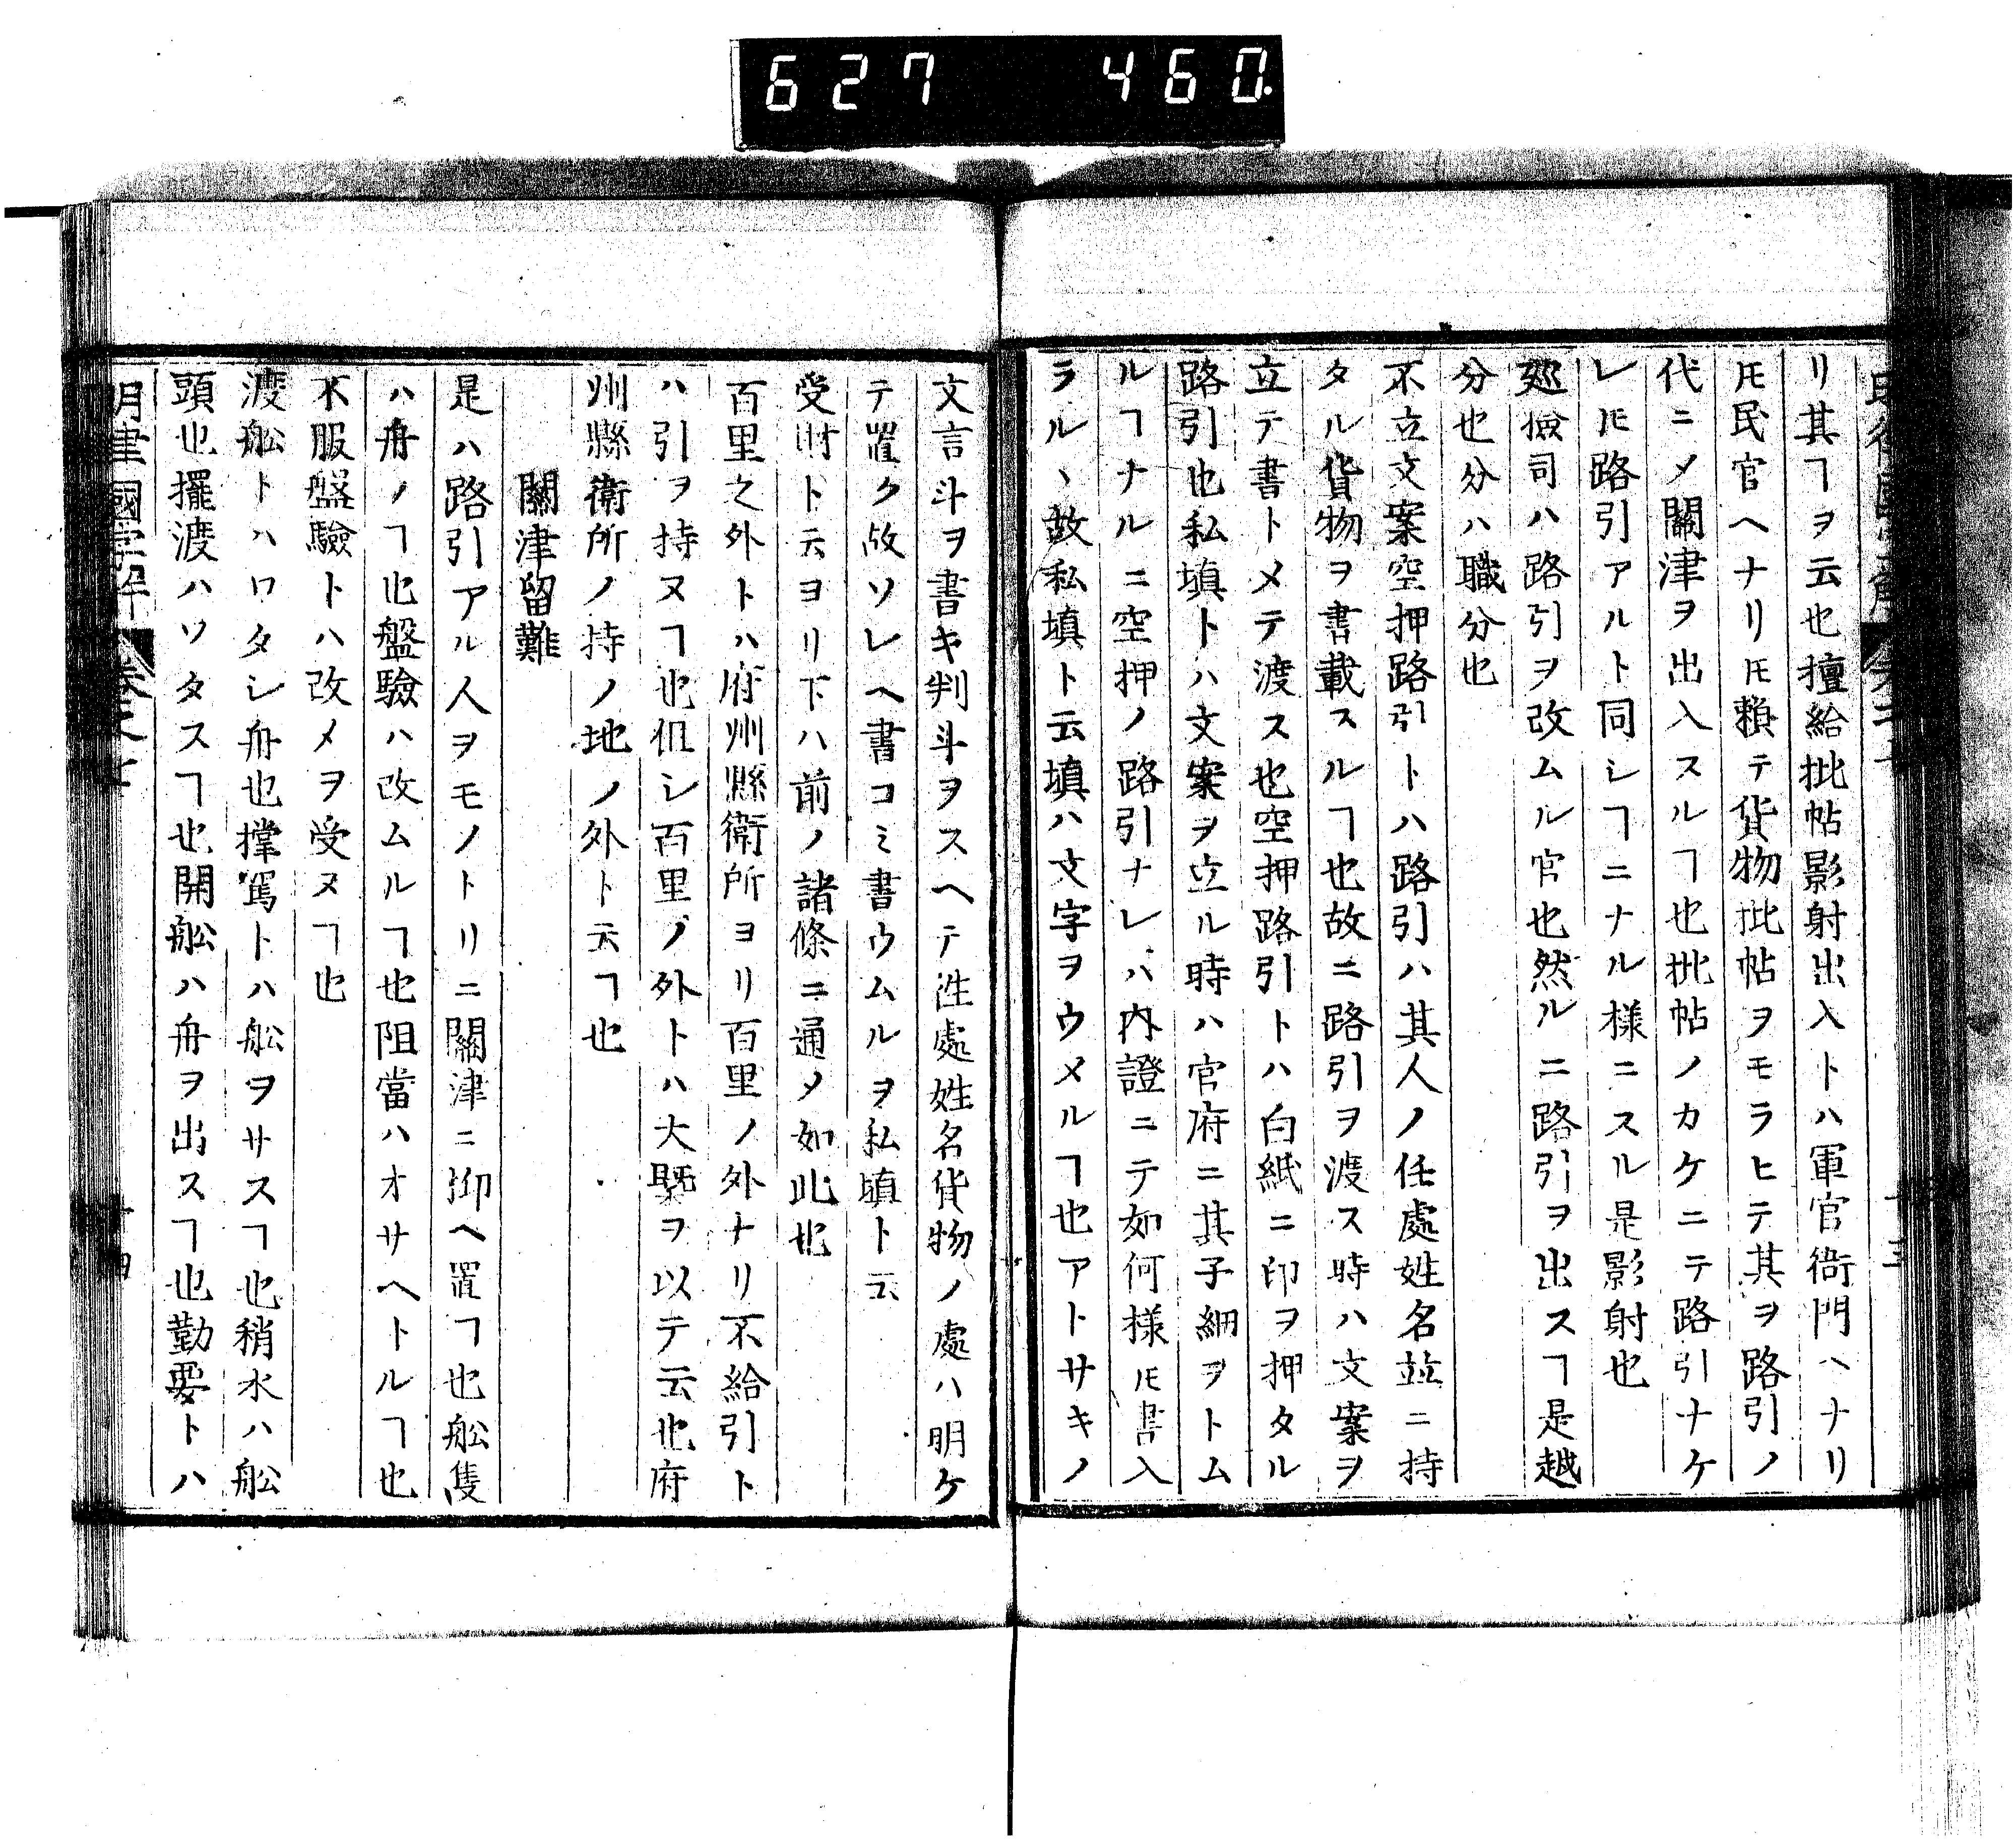 627 460
リ其ヿヲ云也擅給批帖影射出入トハ軍官衙門ヘナリ
𪜈民官ヘナリ𪜈賴テ貨物批帖ヲモラヒテ其ヲ路引ノ
代ニメ關津ヲ出入スルヿ也批帖ノカケニテ路引ナケ
レ𪜈路引アルト同シヿニナル樣ニスル是影射也
廵撿司ハ路引ヲ改ムル官也然ルニ路引ヲ出スヿ是越
分也分ハ職分也
不立文案空押路引トハ路引ハ其人ノ住處姓名並ニ持
タル貨物ヲ書載スルヿ也故ニ路引ヲ渡ス時ハ文案ヲ
立テ書トメテ渡ス也空押路引トハ白紙ニ印ヲ押タル
路引也私填トハ文案ヲ立ル時ハ官府ニ其子細ヲトム
ルヿナルニ空押ノ路引ナレハ内證ニテ如何樣𪜈書入
ラルヽ故私填ト云填ハ文字ヲウメルヿ也アトサキノ
文言斗ヲ書キ判斗ヲスヘテ住處姓名貨物ノ處ハ明ケ
テ置ク故ソレヘ書コミ書ウムルヲ私填ト云
受財ト云ヨリ下ハ前ノ諸條ニ通メ如此也
百里之外トハ府州縣衛所ヨリ百里ノ外ナリ不給引ト
ハ引ヲ持ヌヿ也但シ百里ノ外トハ大槩ヲ以テ云也府
州縣衛所ノ持ノ地ノ外ト云ヿ也
關津留難
是ハ路引アル人ヲモノトリニ關津ニ抑ヘ置ヿ也舩隻
ハ舟ノヿ也盤驗ハ改ムルヿ也阻當ハオサヘトルヿ也
不服盤驗トハ改メヲ受ヌヿ也
渡舩トハワタシ舟也撑駕トハ舩ヲサスヿ也稍水ハ舩
頭也擺渡ハワタスヿ也開舩ハ舟ヲ出スヿ也勤要トハ
明律國字解 卷之七 十四